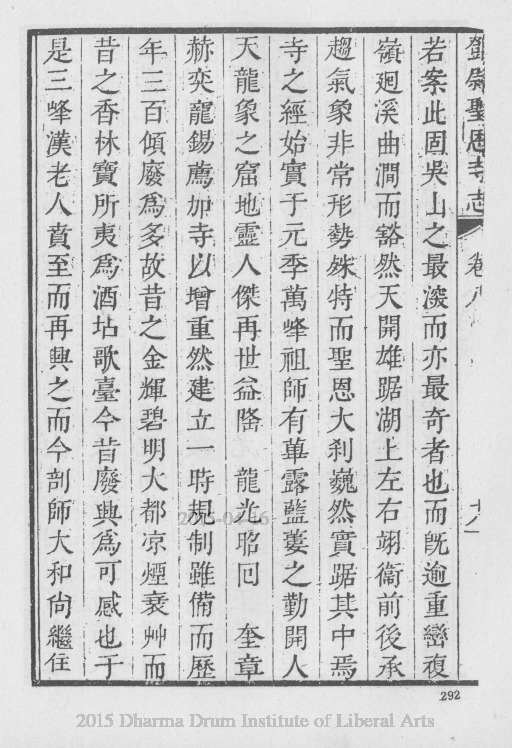 鄧尉聖恩寺志 卷八 十八
若案此固吳山之最深而亦最奇者也而旣逾重巒複
嶺迴溪曲澗而豁然天開雄踞湖上左右翊衞前後承
趨氣象非常形勢殊特而聖恩大刹巍然實踞其中焉
寺之經始實于元季萬峰祖師有蓽露藍蔞之勤開人
天龍象之窟地靈人傑再世益隆 龍光昭回 奎章
赫奕龍錫薦加寺以增重然建立一時規制雖備而歷
年三百傾廢爲多故昔之金輝碧明大都凉煙衰艸而
昔之香林寶所夷爲酒坫歌臺今昔廢興爲可感也于
是三峰漢老人賁至而再興之而今剖師大和尙繼住
292
2015-04-16
2015 Dharma Drum Institute of Liberal Arts